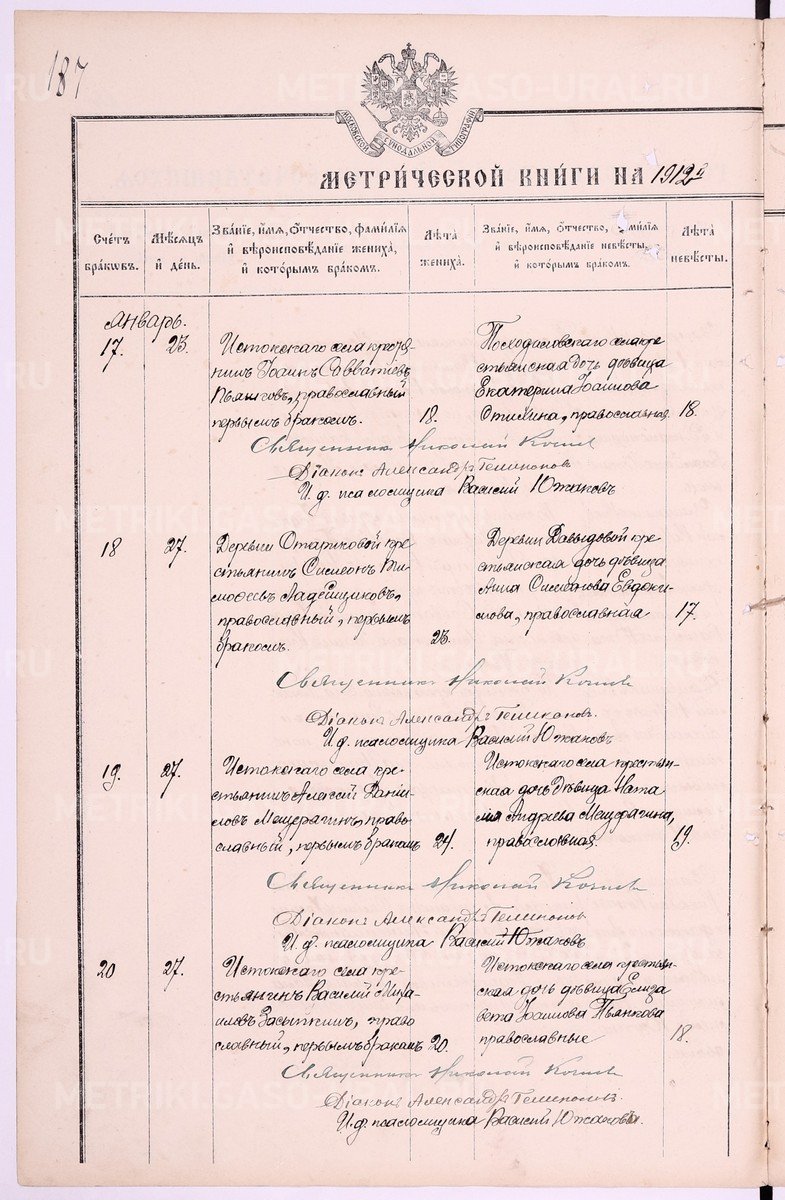 187
МОСКОВСКОЙ СѴНОДАЛЬНОЙ ТИПОГРАФІИ
МЕТРИ́ЧЕСКОЙ КНИ́ГИ НА 1912 г
Сче́тъ бра́ковъ.
Мѣ́сяцъ и҆ де́нь.
Зва́ніе, и҆́мя, ѻ҆́тчество, фами́лія и҆ вѣроисповѣ́даніе жениха̀, и҆ кото́рымъ бра́комъ.
Лѣ́та жениха̀.
Зва́ніе, и҆́мя, ѻ҆́тчество, фами́лія и҆ вѣроисповѣ́даніе невѣ́сты, и҆ кото́рымъ бра́комъ.
Лѣ́та невѣ́сты.
Январь.
17. 23.
Истокскаго села крестья-
нинъ Іоаннъ Савватіевъ
православный
первымъ бракомъ.
18.
села кре-
стьянская дочь дѣвица
Екатерина Іоаннова
православная
18.
Священникъ Николай
Діаконъ Александръ
И. д. псаломщика Василій Южаковъ
18 27.
Деревни кре-
стьянинъ Симеонъ Ти-
моѳеевъ Ладейщиковъ,
православный, первымъ
бракомъ.
23.
Деревни Давыдовой кре-
стьянская дочь дѣвица
Анна Симеонова Евдоки-
мова, православная
17.
Священникъ Николай
Діаконъ Александръ
И. д. псаломщика Василій Южаковъ
19. 27.
Истокскаго села кре-
стьянинъ Алексій Дані-
ловъ Мещерагинъ, право-
славный, первымъ бракомъ
24.
Истокскаго села крестьян-
ская дочь дѣвица Ната
лія Андреева Мещерагина,
православная.
19.
Священникъ Николай
Діаконъ Александръ
И. д. псаломщика Василій Южаковъ
20 27.
Истокскаго села кре-
стьянинъ Василій Миха-
иловъ Засыпкинъ, право
славный, первымъ бракомъ
20.
Истокскаго села крестьян-
ская дочь дѣвица Елиза
вета Іоаннова Пьянкова
православные
18.
Священникъ Николай
Діаконъ Александръ
И. д. псаломщика Василій Южаковъ.
METRIKI.GASO-URAL.RU